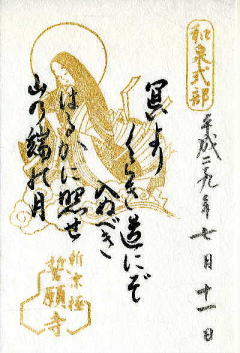 和泉式部
平成二九年七月十一日
冥より
くらき道にぞ
入ぬべき
はるかに照せ
山の端の月
新京極
誓願寺